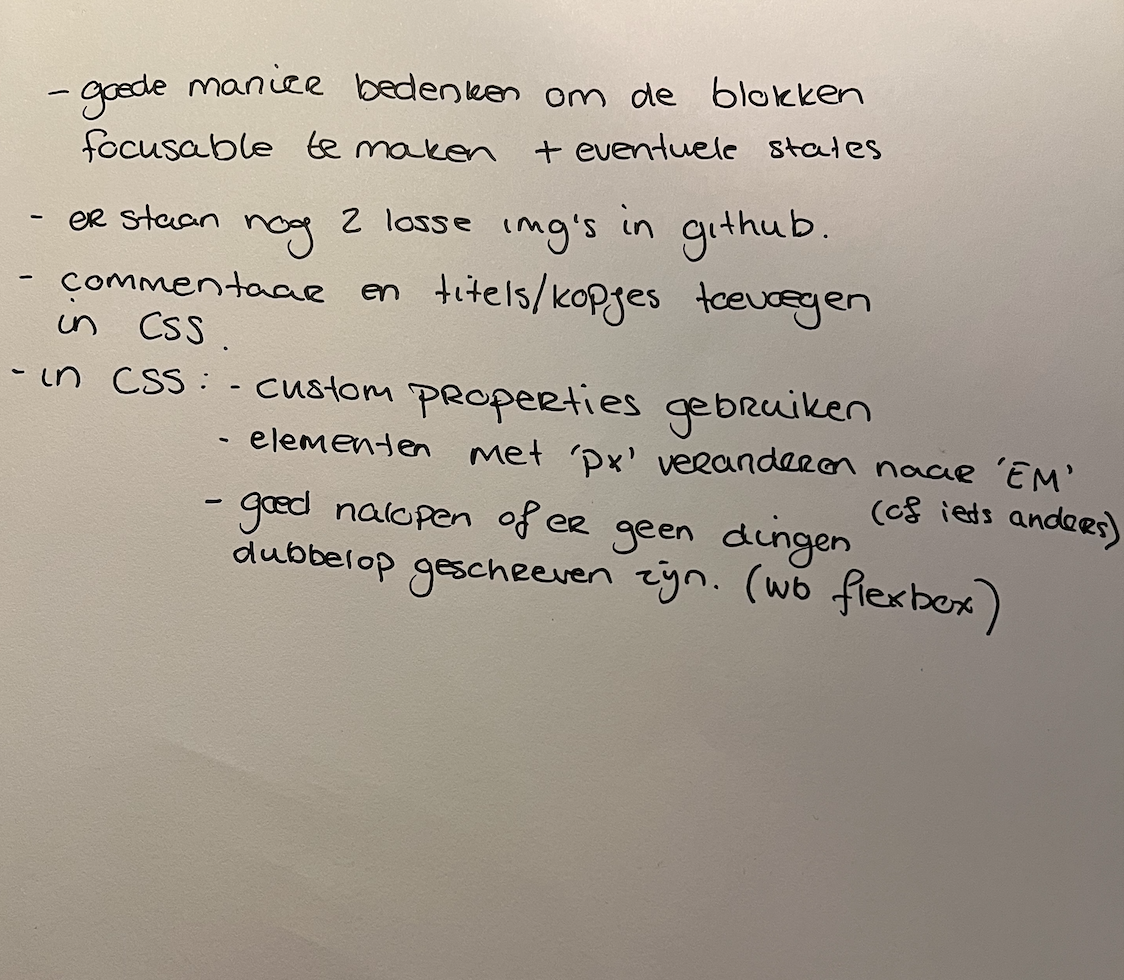 - goede manier bedenken om de blokken
focusable te maken + eventuele states
- er staan nog 2 losse img's in github.
- commentaar en titels/kopjes toevoegen
in CSS.
- in CSS: - custom properties gebruiken
- elementen met 'px' veranderen naar 'EM'
(of iets anders)
- goed nalopen of er geen dingen
dubbelop geschreven zijn. (wb flexbox)